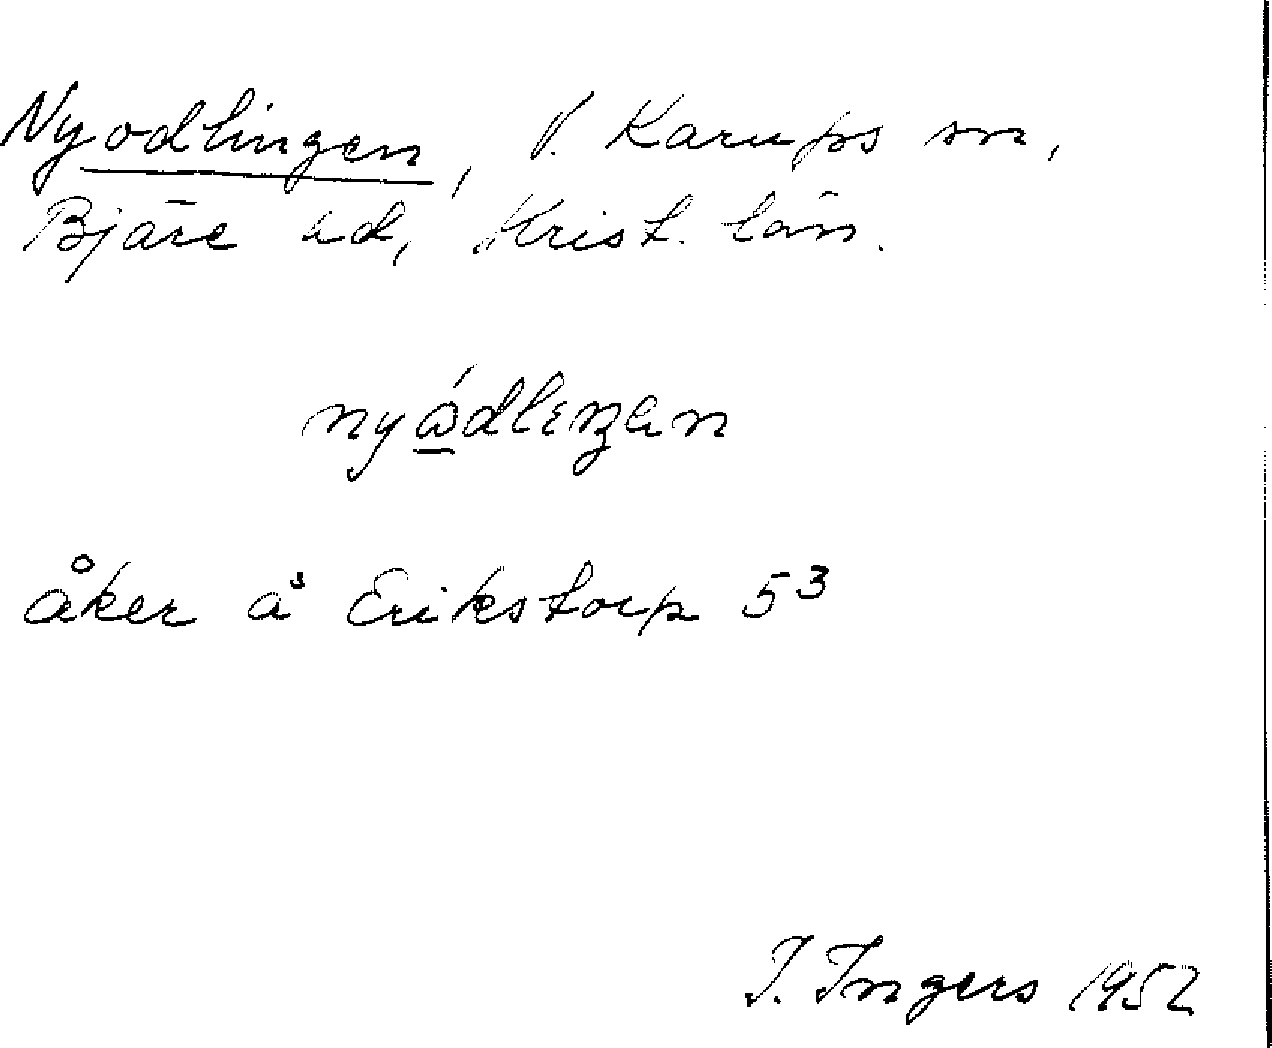 Nyodlingen, V. Karups sn,
Bjäre hd, Krist. län.
nyódleŋan
åker å Erikstorp 5³
I. Ingers 1952